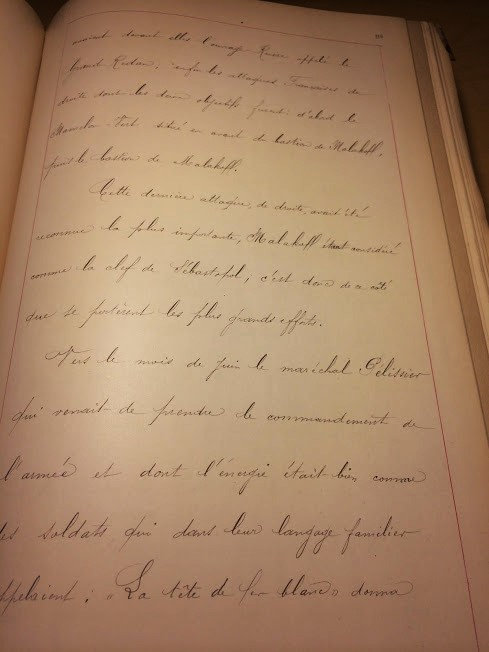 avaient devant elles l'ouvrage Russe appelé le
Grand Redan, enfin les attaques Françaises de
droite dont les deux objectifs furent: d'abord le
Mamelon-Vert situé en avant du bastion de Malakoff,
puis le bastion de Malakoff.
Cette dernière attaque, de droite, avait été
reconnue la plus importante, Malakoff étant considéré
comme la clef de Sébastopol; c'est donc de ce côté
que se portèrent les plus grands efforts.
Vers le mois de juin le maréchal Pélissier
qui venait de prendre le commandement de
l'armée et dont l'énergie était bien connue
des soldats qui dans leur langage familier
appelaient: "La tête de fer blanc" donna